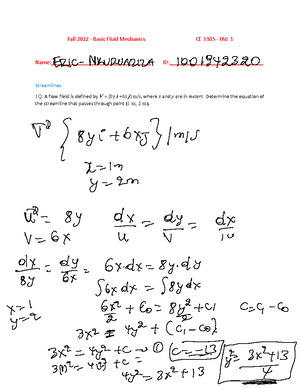 Fall 2022 - Basic Fluid Mechanics CE 3305 - HW 3
Name: ERIC- NKURUNZIZA ID: 1001842320
Streamlines
1Q. A flow field is defined by V = (8y i + 6x j) m/s, where x and y are in meters. Determine the equation of
the streamline that passes through point (1 m, 2 m).
V {8yi + 6xj} m/s
x = 1m
y = 2m
u = 8y dx/u = dy/V = dx/
V = 6x
dx/8y = dy/6x 6x·dx = 8y·dy
∫6x dx = ∫8y dy
x = 1
y = 2
6x²/2 + C0 = 8y²/2 + C1 C = C1 - C0
3x² = 4y² + (C1 - C0)
3x² = 4y² + C → ① C = -13
3(1)² = 4(2)² + C =
4y² = 3x² + 13
y² = 3x² + 13/4